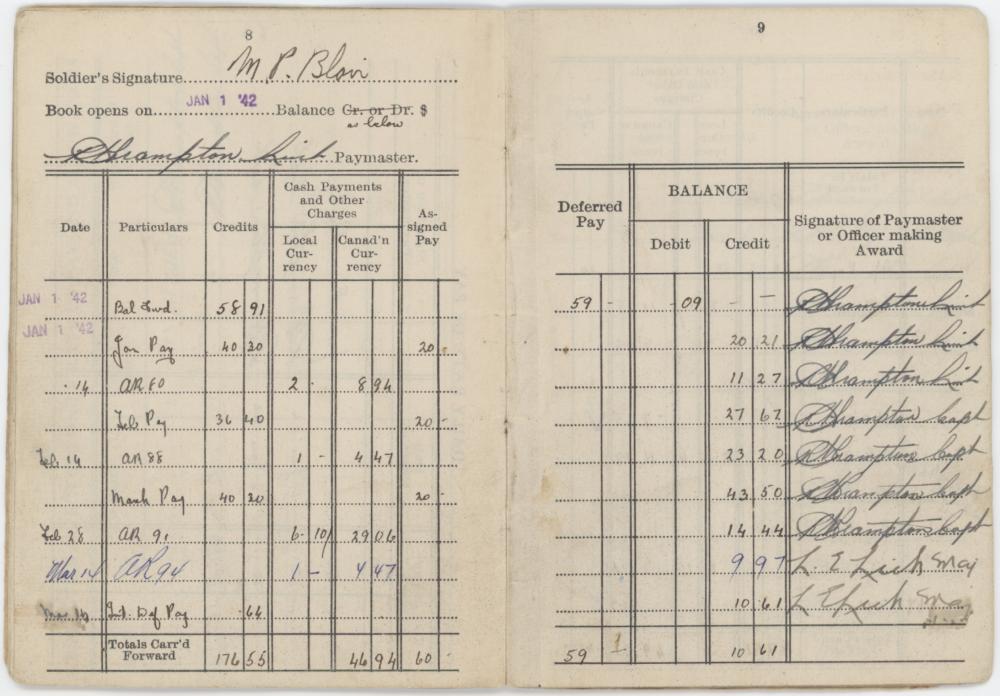 8
Soldier's Signature M. P. Blair
Book opens on JAN 1 '42 Balance Cr. or Dr. $
as below
R Hrampton Lieut Paymaster.
Date Particulars Credits Cash Payments and Other Charges Local Currency Canad'n Currency Assigned Pay
JAN 1 '42 Bal Fwd. 58 91
JAN 1 '42 Jan Pay 40 30 20 -
14 AR 80 2 - 8 94
Feb Pay 36 40 20 -
Feb 14 AR 88 1 - 4 47
March Pay 40 20 20 -
Feb 28 AR 91 6 - 10/ 29 06
Mar 14 AR 94 1 - 4 47
Mar Def Pay 64
Totals Carr'd Forward 176 55 46 94 60 -
9
Deferred Pay BALANCE Debit Credit Signature of Paymaster or Officer making Award
59 - - 09 - - R Hrampton Lieut
20 21 R Hrampton Lieut
11 27 R Hrampton Lieut
27 67 R Hrampton Capt
23 20 R Hrampton Capt
43 50 R Hrampton Capt
14 44 R Hrampton Capt
9 97 L. E Maj
10 61 L E Maj
59 1 10 61